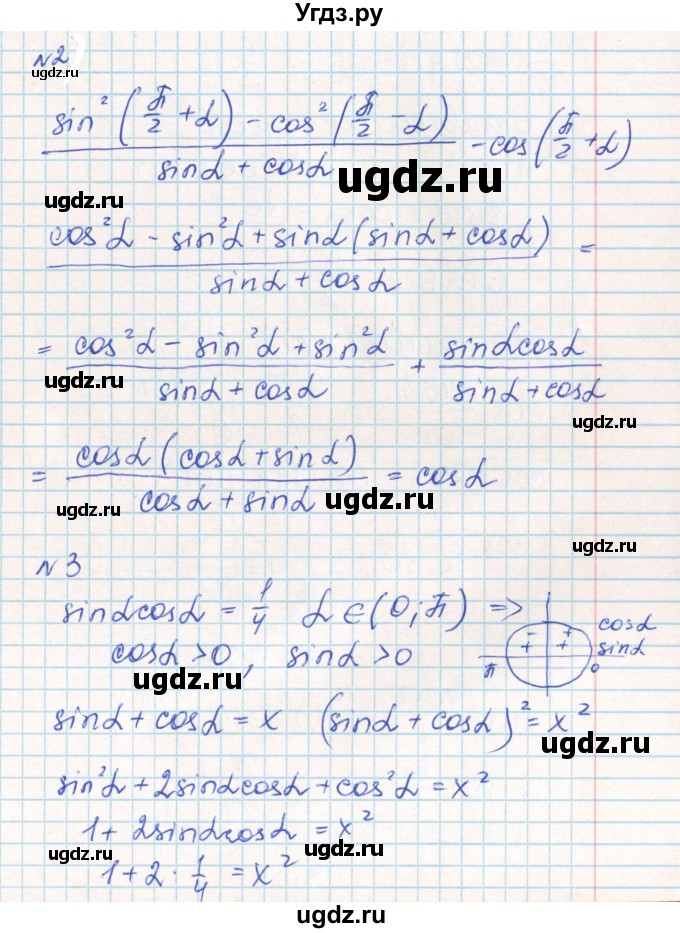 Угдз.ру
№2
ugdz.ru
sin²(π/2 + α) - cos²(π/2 - α) / sinα + cosα - cos(π/2 + α)
ugdz.ru
ugdz.ru
cos²α - sin²α + sinα(sinα + cosα) / sinα + cosα =
ugdz.ru
= cos²α - sin²α + sin²α / sinα + cosα + sinαcosα / sinα + cosα
ugdz.ru
ugdz.ru
= cosα(cosα + sinα) / cosα + sinα = cosα
ugdz.ru
ugdz.ru
№3
ugdz.ru
sinαcosα = 1/4 α∈(0; π) =>
cosα
- + + +
sinα
π 0
cosα > 0, sinα > 0
ugdz.ru
ugdz.ru
sinα + cosα = x (sinα + cosα)² = x²
ugdz.ru
sin²α + 2sinαcosα + cos²α = x²
1 + 2sinαcosα = x²
ugdz.ru
ugdz.ru
1 + 2 · 1/4 = x²
ugdz.ru